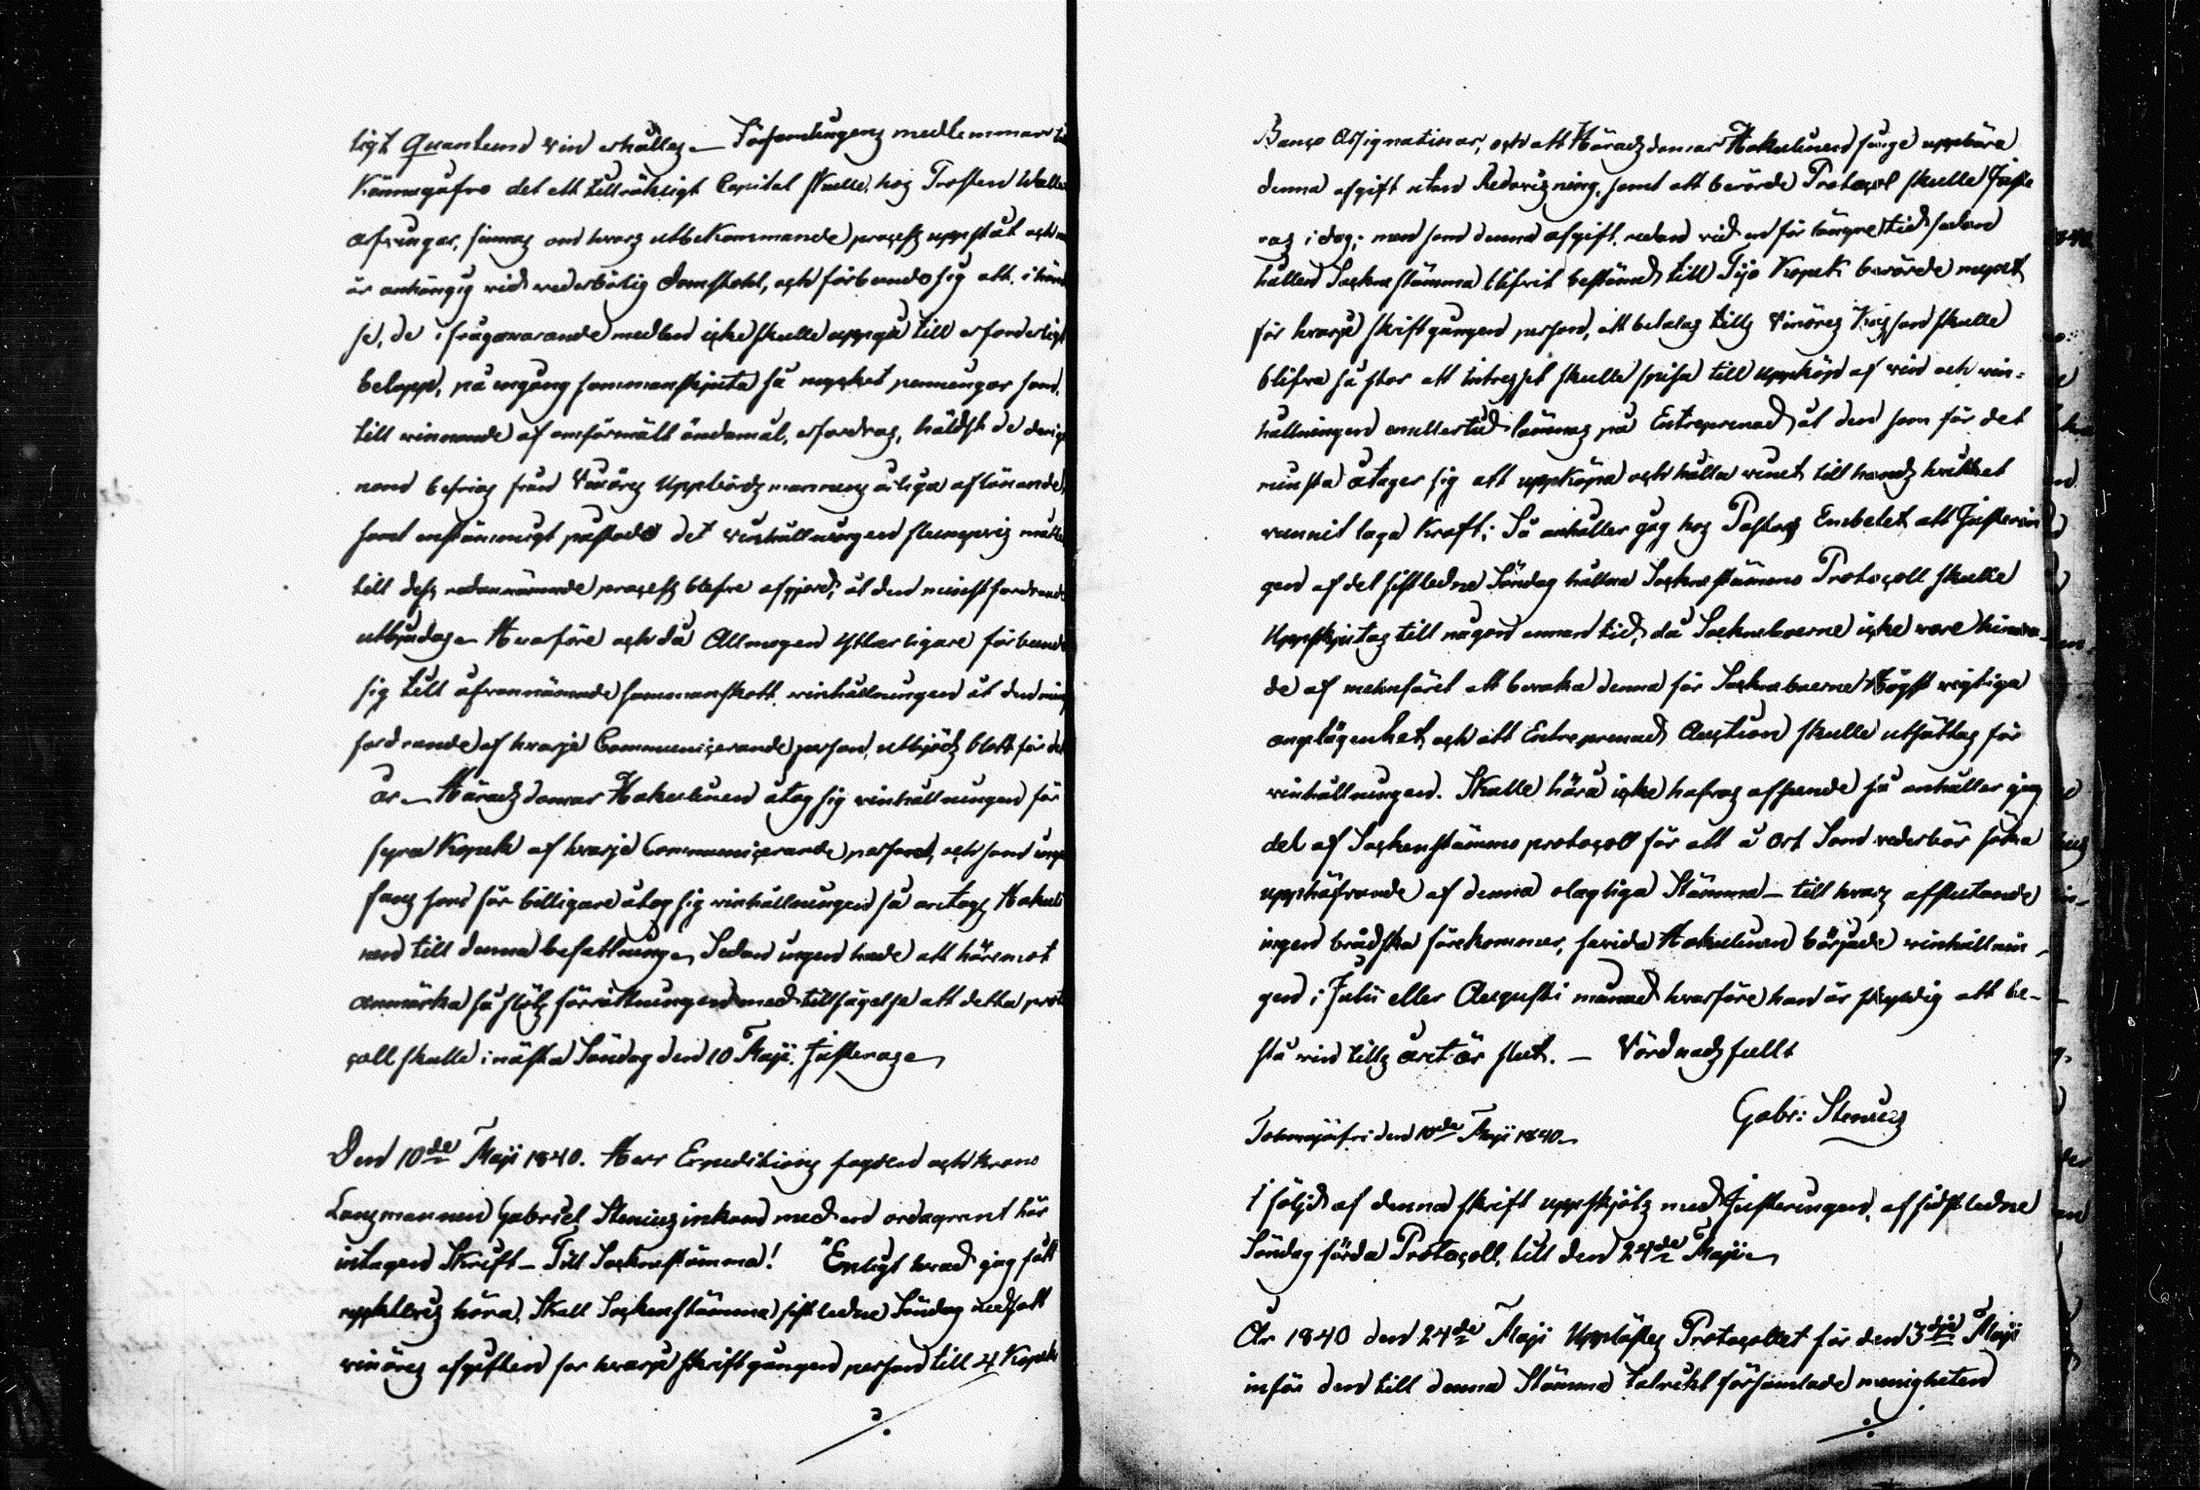 ligt Quantum vin erhålles – Församlingens medlemmar til
kännagåfvo det ett tillräckligt Capital skulle, hos Prosten Walle
arfvingar, finnas om hvars utbekommande process uppstått och nu
är anhängig vid vederbörlig Domstohl, och förbundo sig att, i händ
se, de i frågavarande medlen icke skulle uppgå till erforderligt
belopp, på engång sammanskjuta så mycket penningar som
till vinnande af omförmält ändamål, erfordras, häldst de derige
nom befrias från Vinöres Uppbördsmannens årliga aflönande,
samt enstämmigt påstodo det vinhållningen slumpvis måtte
till dess redannämnde process blefve afgjord, åt den minst fordrande
utbjudas – Hvarföre och då Allmogen ytterligare förbundo
sig till ofvannämnde sammanskott, vinhållningen åt den minst
fordrande af hvarje Communicerande person, utbjöds blott för det
år – Häradsdomar Hakulinen åtog sig vinhållningen för
fyra Kopek af hvarje Communicerande person, och som ingen
fans som för billigare åtog sig vinhållningen så antogs Hakuli
nen till denna befattning – Sedan ingen hade att häremot
anmärka så slöts förrättningen med tillsägelse att detta proto
coll skulle i nästa Söndag den 10 Maji Justeras –
Den 10de Maji 1840. Herr Expeditions fogden och Krono
Länsmannen Gabriel Stenius inkom med en ordagrant här
intagen Skrift – Till Sockenstämma! "Enligt hvad jag fått
upplysvis höra, Skall Sockenstämma sistledne Söndag nedsatt
vinöres afgiften for hvarje skriftgången person till 4 Kopek
Banco Assignationer, och att Häradsdomar Hakulinen finge uppbära
denna afgift utan Redovisning, samt att berörde Protocol skulle Juste
ras i dag; men som denna afgift, redan vid en för längre tid sedan
hållen Sockenstämma blifvit bestämd till Tijo Kopek berörde mynt
för hvarje skriftgången person, att betalas tills Vinöres Kassan skulle
blifva så stor att intresset skulle spisa till uppköp af vin och vin-
hållningen emellertid lämnas på Entreprenad åt den som för det
minsta åtager sig att uppköpa och hålla vinet till hands hvilket
vunnit laga kraft; Så anhåller jag hos Pastors Embetet att Justerin
gen af det sistledne Söndag hållna Sockenstämmo Protocoll skulle
Uppskjutas till någon annan tid, då Sockneboerne icke vore hindra-
de af menföret att bevaka denna för Sockneboerne Högst vigtiga
angelägenhet och att Entreprenad Auction skulle utsättas för
vinhållningen. Skulle hära icke hafvas afseende så anhåller jag
del af Sockenstämmo protocoll för att å Ort Som vederbör söka
upphäfvande af denna olagliga Stämma – till hvars afslutande
ingen brådska förekommer, sevida Hakulinen började vinhållnin-
gen i Julii eller Augusti månad hvarföre han är skyldig att be-
stå vin tills året är slut. – Vördnadsfullt
Gabr: Stenius
Tohmajärfvi den 10de Maji 1840 –
I följd af denna skrift uppskjöts med Justeringen, af sidstledne
Söndag förda Protocoll, till den 24de Maji –
År 1840 den 24de Maji Upplästes Protocollet för den 3dje Maji
inför den till denna Stämma talrikt församlade menigheten